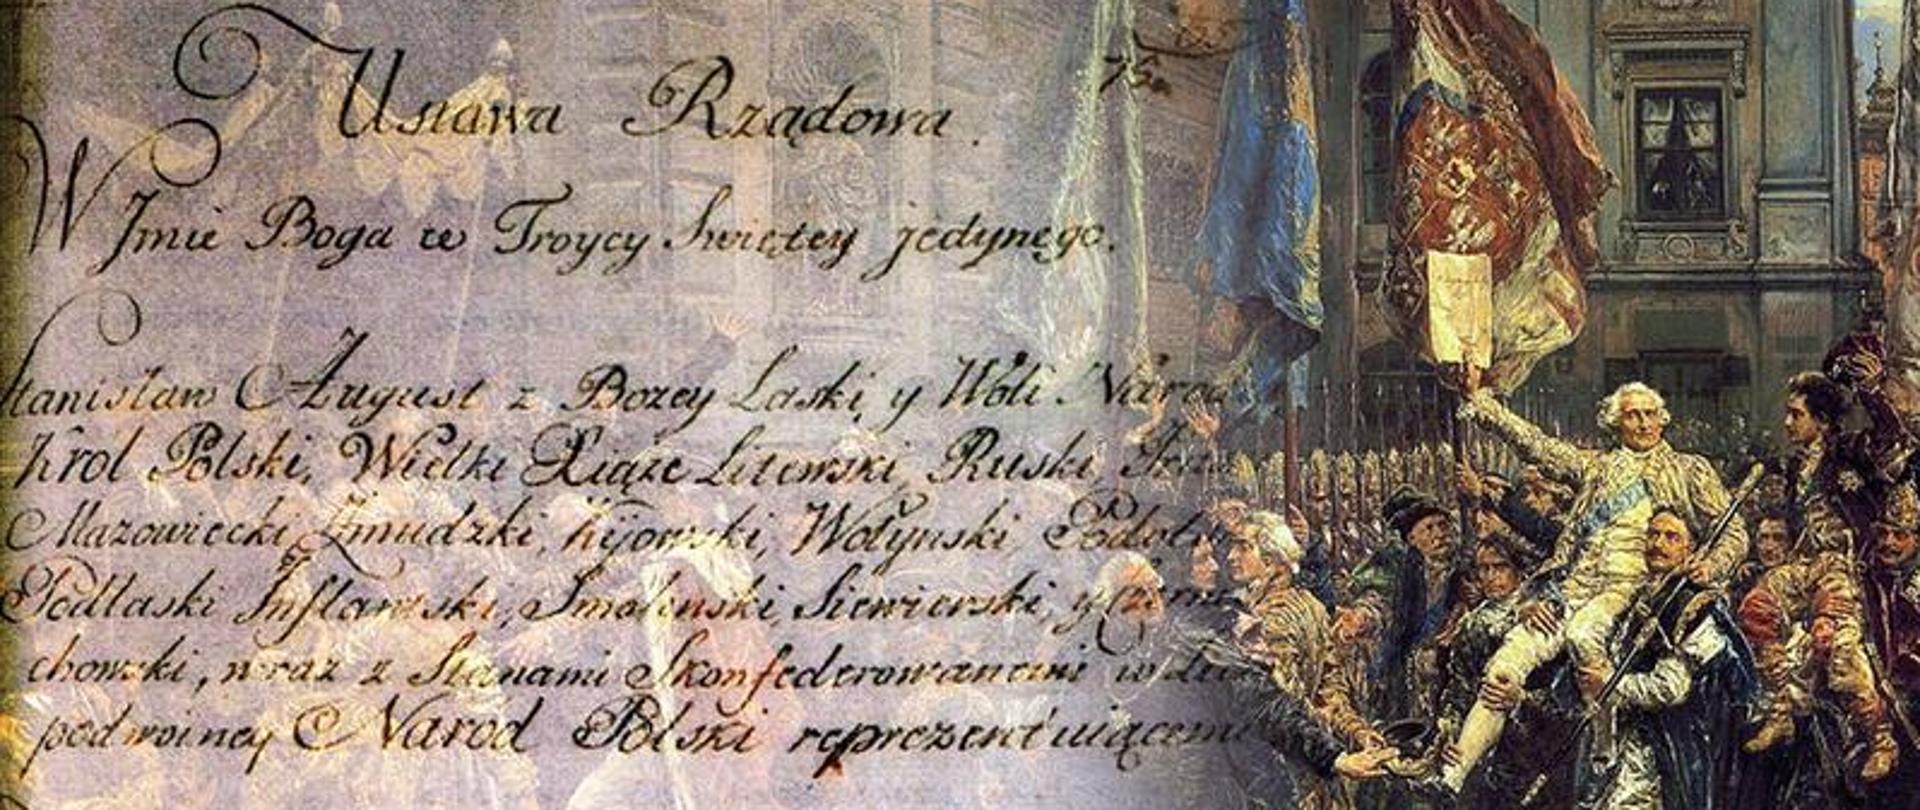 Ustawa Rządowa.
W Jmie Boga w Troycy Swiętey jedynego.
Stanisław August z Bozey Łaski, y Woli Narod
Krol Polski, Wielki Xiąże Litewski, Ruski,
Mazowiecki, Zmudzki, Kijowski, Wołynski,
Podlaski Jnflantski, Smolenski, Siewierski, y
chowski, wraz z Stanami Skonfederowanemi w
podwoiney Narod Polski reprezentuiącemi